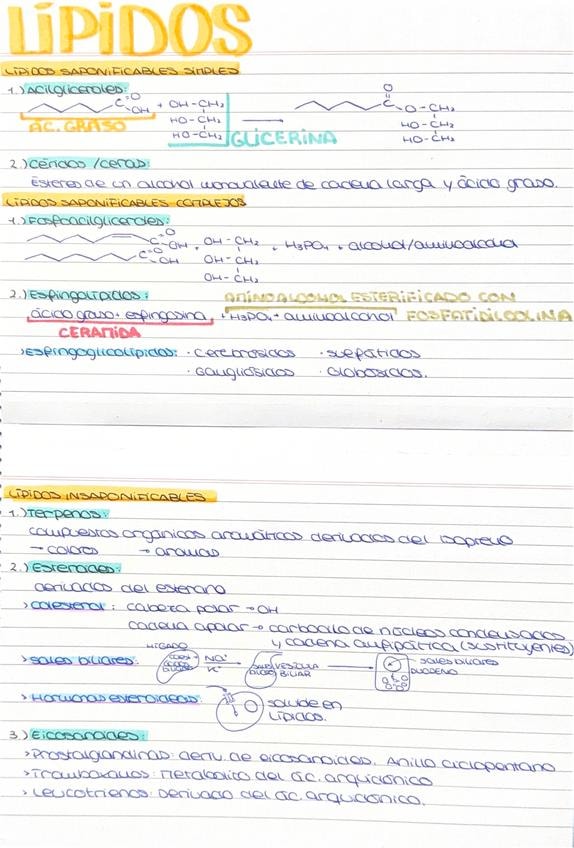 LÍPIDOS
LÍPIDOS SAPONIFICABLES SIMPLES
1.) Acilgliceroles:
C O OH + OH-CH2 C O O-CH2
HO-CH2 HO-CH2
HO-CH2 HO-CH2
ÁC. GRASO GLICERINA
2.) Céridos / ceras:
Ésteres de un alcohol monovalente de cadena larga y ácido graso.
LÍPIDOS SAPONIFICABLES COMPLEJOS
1.) Fosfoacilgliceroles:
C O OH + OH-CH2 + H3PO4 + alcohol/aminoalcohol
C O OH OH-CH
OH-CH2
2.) Espingolípidos: AMINOALCOHOL ESTERIFICADO CON
ácido graso + espingosina + H3PO4 + aminoalcohol FOSFATIDILCOLINA
CERAMIDA
>Espingoglicolípidos: · cerebrósidos · sulfátidos
· Gangliósidos · Globósidos.
LÍPIDOS INSAPONIFICABLES
1.) Terpenos:
compuestos orgánicos aromáticos derivados del isopreno
→ colores → aromas
2.) Esteroides:
derivados del esterano
>Colesterol: cabeza polar → OH
cadena apolar → carbociclo de núcleos condensados
y cadena alifática (sustituyentes)
HÍGADO
>Sales biliares: Na+ K+ SALES BILIARES VESÍCULA BILIAR SALES BILIARES DUODENO
>Hormonas esteroideas: soluble en
Lípidos.
3.) Eicosanoides:
>Prostaglandinas: deriv. de eicosanoides. Anillo ciclopentano
>Tromboxanos: Metabolito del ác. arquidónico
>Leucotrienos: Derivado del ác. arquidónico.